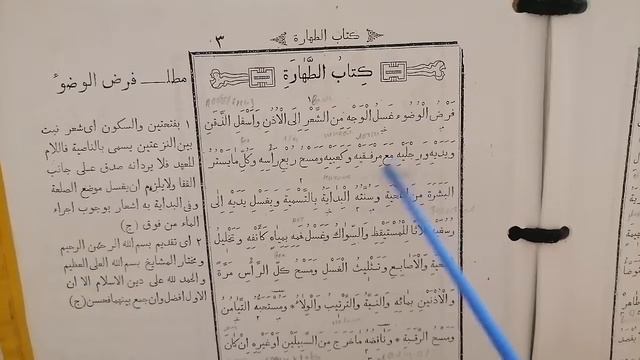 ٣ كتاب الطهارة
كِتَابُ الطَّهَارَةِ
فَرْضُ الْوُضُوءِ غَسْلُ الْوَجْهِ مِنَ الشَّعْرِ اِلَى الْاُذُنِ وَاَسْفَلِ الذَّقَنِ
وَيَدَيْهِ وَرِجْلَيْهِ مَعَ مِرْفَقَيْهِ وَكَعْبَيْهِ وَمَسْحُ رُبُعِ رَأْسِهِ وَكُلِّ مَايَسْتُرُ
الْبَشَرَةَ مِنَ اللِّحْيَةِ وَسُنَّتُهُ الْبِدَايَةُ بِالتَّسْمِيَةِ وَبِغَسْلِ يَدَيْهِ اِلَى
ثَلَاثًا لِلْمُسْتَيْقِظِ وَالسِّوَاكُ وَغَسْلُ فَمِهِ بِمِيَاهٍ كَاَنْفِهِ وَتَخْلِيلُ
وَالْاَصَابِعِ وَتَثْلِيثُ الْغَسْلِ وَمَسْحُ كُلِّ الرَّأْسِ مَرَّةً
وَالْاُذُنَيْنِ بِمَائِهِ وَالنِّيَّةُ وَالتَّرْتِيبُ وَالْوِلَاءُ وَمُسْتَحَبُّهُ التَّيَامُنُ
وَمَسْحُ الرَّقَبَةِ وَنَاقِضُهُ مَاخَرَجَ مِنَ السَّبِيلَيْنِ اَوْغَيْرِهِ اِنْ كَانَ
مطلب فرض الوضوء
١ بفتحتين والسكون اى شعر نبت
بين النزعتين يسمى بالناصية فاللام
للعهد فلا يرد انه صدق على جانب
القفا ولايلزم ان يغسل موضع الصلعة
وفى البداية به اشعار بوجوب اجراء
الماء من فوق (ج)
٢ اى تقديم بسم الله الرحمن الرحيم
ومختار المشايخ بسم الله العلى العظيم
والحمد لله على دين الاسلام الا ان
الاول افضل وان جمع بينهما فحسن (ج)